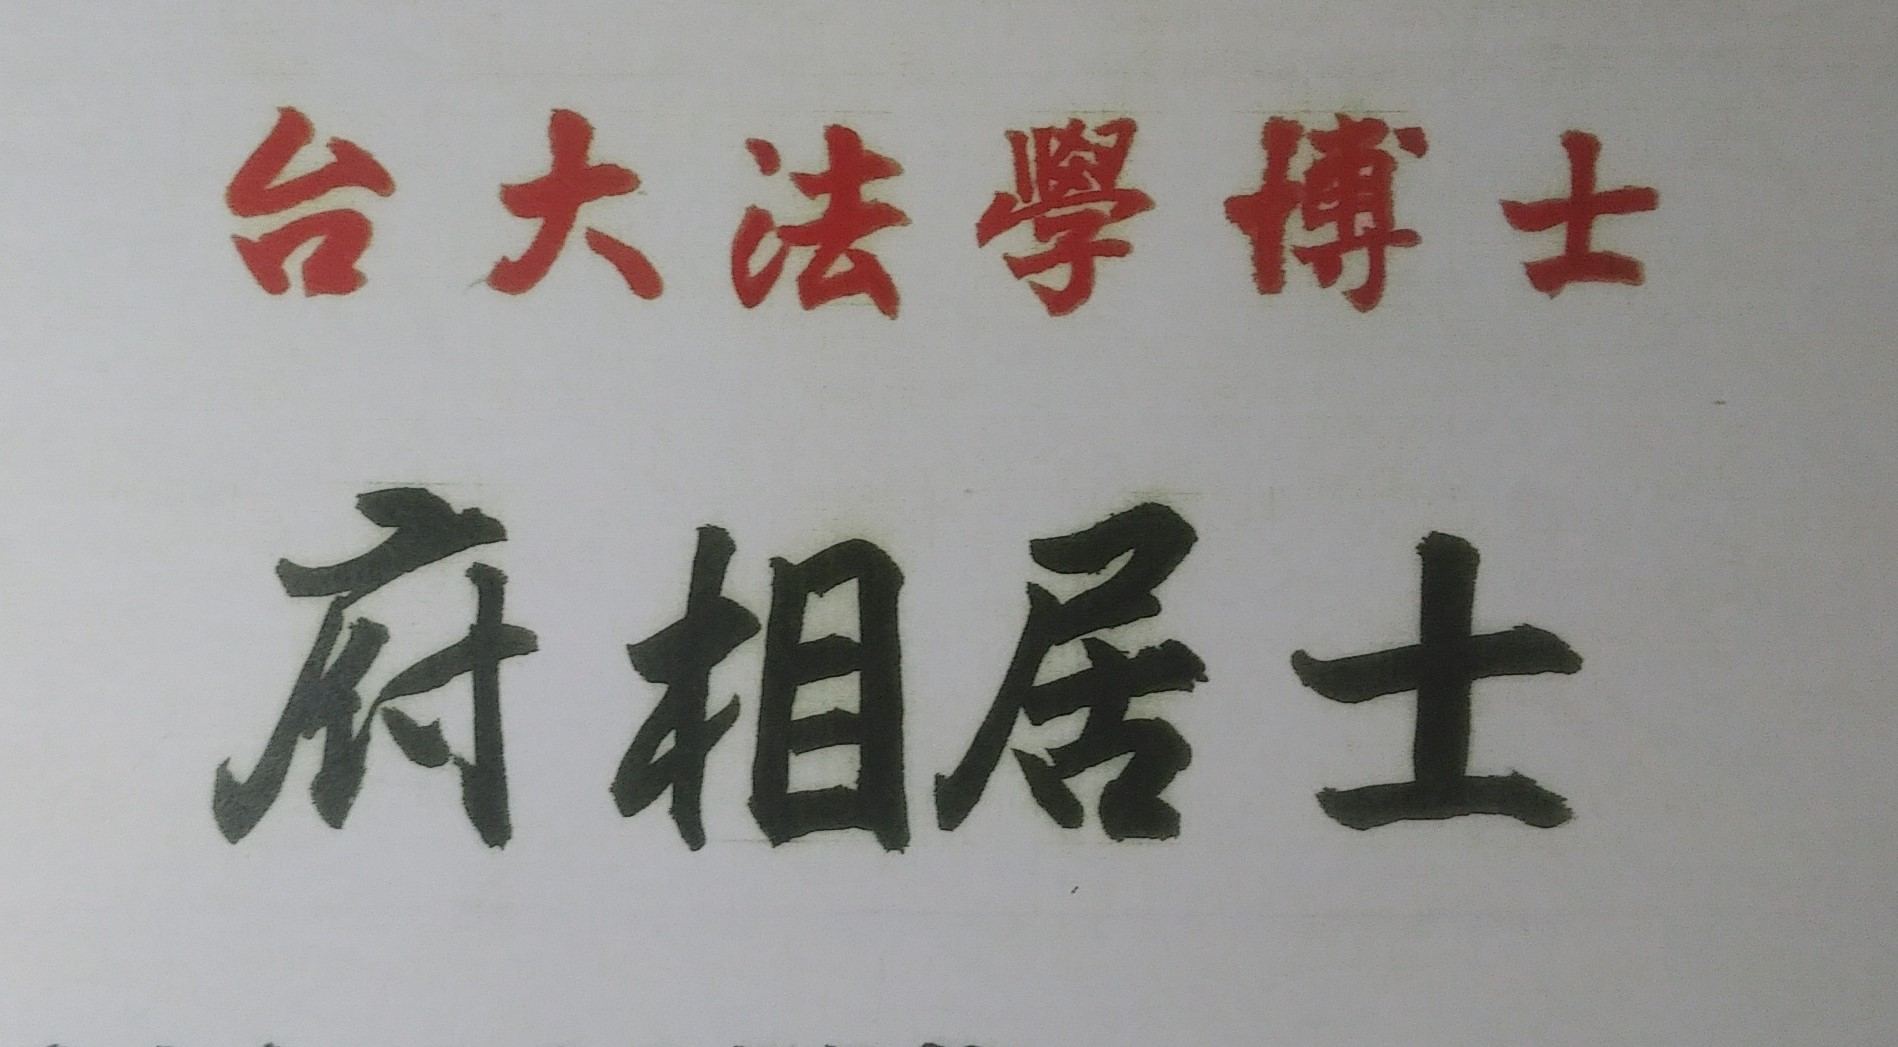 台大法學博士
府相居士